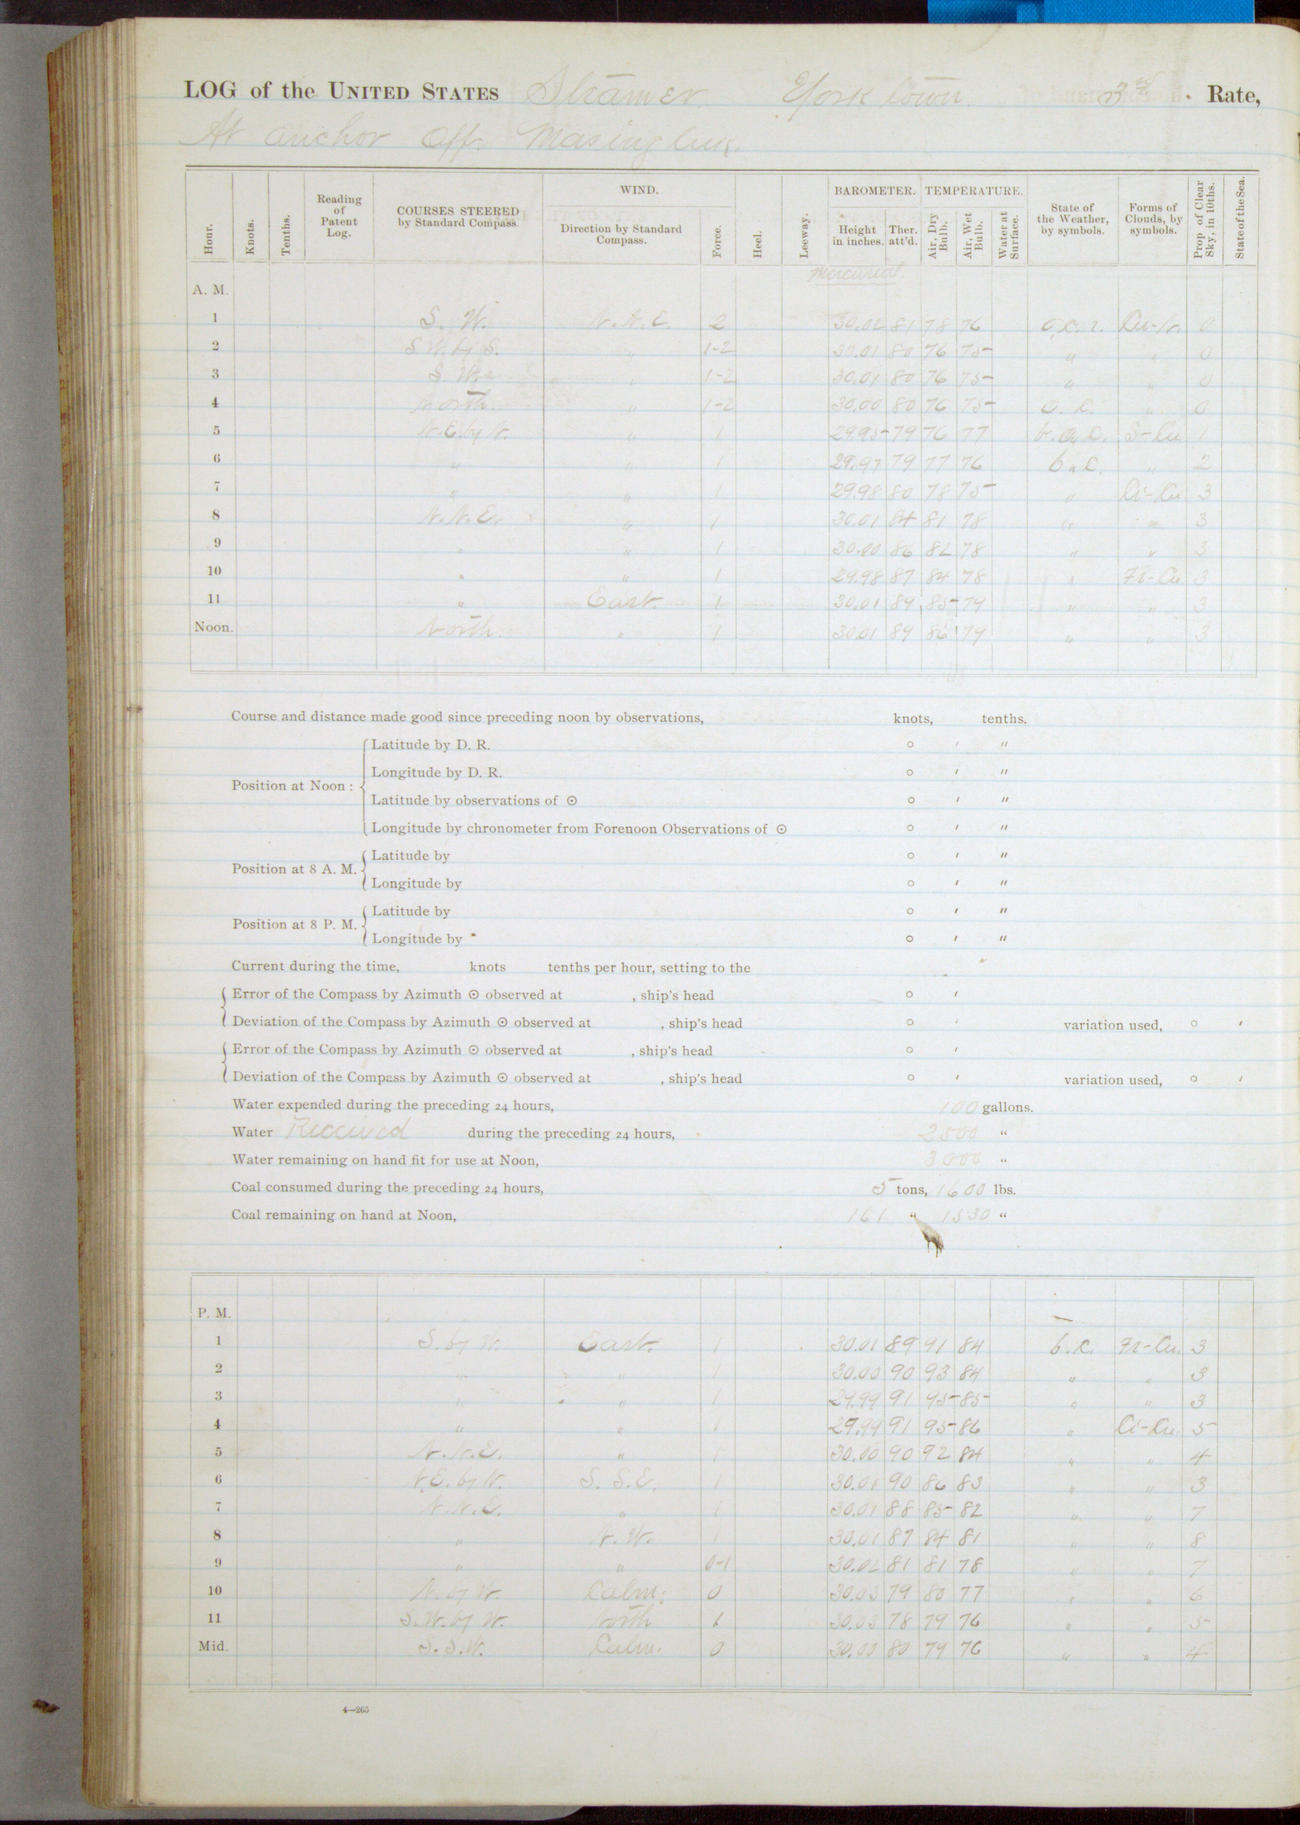 LOG of the UNITED STATES Steamer Yorktown 3rd Rate,
At anchor off Masingluc.
Hour. Knots. Tenths. Reading of Patent Log. COURSES STEERED by Standard Compass. WIND. Direction by Standard Compass. Force. Heel. Leeway. BAROMETER. Height in inches. Ther. att'd. TEMPERATURE. Air, Dry Bulb. Air, Wet Bulb. Water at Surface. State of the Weather, by symbols. Forms of Clouds, by symbols. Prop. of Clear Sky, in 10ths. State of the Sea.
Mercurial
A. M.
1 S. W. N.N.E. 2 30.02 81 78 76 o.c.r. Cu-N. 0
2 S.W. by S. " 1-2 30.01 80 76 75 " " 0
3 S. W. " 1-2 30.01 80 76 75 " " 0
4 North. " 1-2 30.00 80 76 75 o. c. " 0
5 N.E. by N. " 1 29.95 79 76 77 S-Cu 1
6 " " 1 29.97 79 77 76 b.c. " 2
7 " " 1 29.98 80 78 75 " Ci-Cu 3
8 N.N.E. " 1 30.01 84 81 78 " " 3
9 " " 1 30.00 86 82 78 " " 3
10 " " 1 29.98 87 84 78 " Fr-Cu 3
11 " East. 1 30.01 89 85 79 " " 3
Noon. North. " 1 30.01 89 86 79 " " 3
Course and distance made good since preceding noon by observations, knots, tenths.
Position at Noon :
Latitude by D. R. ° ′ ″
Longitude by D. R. ° ′ ″
Latitude by observations of ☉ ° ′ ″
Longitude by chronometer from Forenoon Observations of ☉ ° ′ ″
Position at 8 A. M.
Latitude by ° ′ ″
Longitude by ° ′ ″
Position at 8 P. M.
Latitude by ° ′ ″
Longitude by ° ′ ″
Current during the time, knots tenths per hour, setting to the
Error of the Compass by Azimuth ☉ observed at , ship's head ° ′
Deviation of the Compass by Azimuth ☉ observed at , ship's head ° ′ variation used, ° ′
Error of the Compass by Azimuth ☉ observed at , ship's head ° ′
Deviation of the Compass by Azimuth ☉ observed at , ship's head ° ′ variation used, ° ′
Water expended during the preceding 24 hours, 100 gallons.
Water Received during the preceding 24 hours, 2500 "
Water remaining on hand fit for use at Noon, 3000 "
Coal consumed during the preceding 24 hours, 5 tons, 1600 lbs.
Coal remaining on hand at Noon, 161 " 1530 "
P. M.
1 S. by W. East. 1 30.01 89 91 84 b.c. Fr-Cu. 3
2 " " 1 30.00 90 93 84 " " 3
3 " " 1 29.99 91 95 85 " " 3
4 " " 1 29.99 91 95 86 " Ci-Cu. 5
5 N.N.E. " 1 30.00 90 92 84 " " 4
6 N.E. by N. S. S.E. 1 30.01 90 86 83 " " 3
7 N.N.E. " 1 30.01 88 85 82 " " 7
8 " N.W. 1 30.01 87 84 81 " " 8
9 " " 0-1 30.02 81 81 78 " " 7
10 N. by W. Calm. 0 30.03 79 80 77 " " 6
11 S.W. by W. North 1 30.03 78 79 76 " " 5
Mid. S.S.W. Calm. 0 30.00 80 79 76 " " 4
4—265